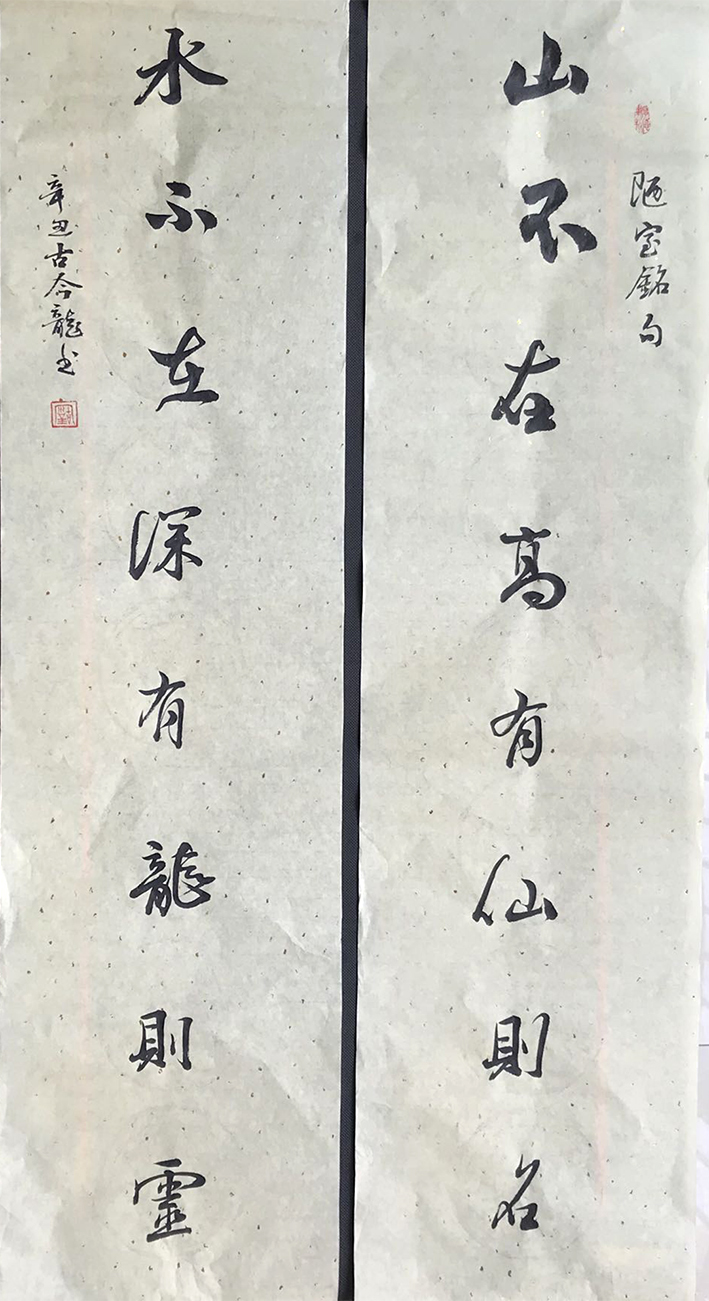 陋室銘句
山不在高有仙則名
水不在深有龍則靈
辛丑古今龍书